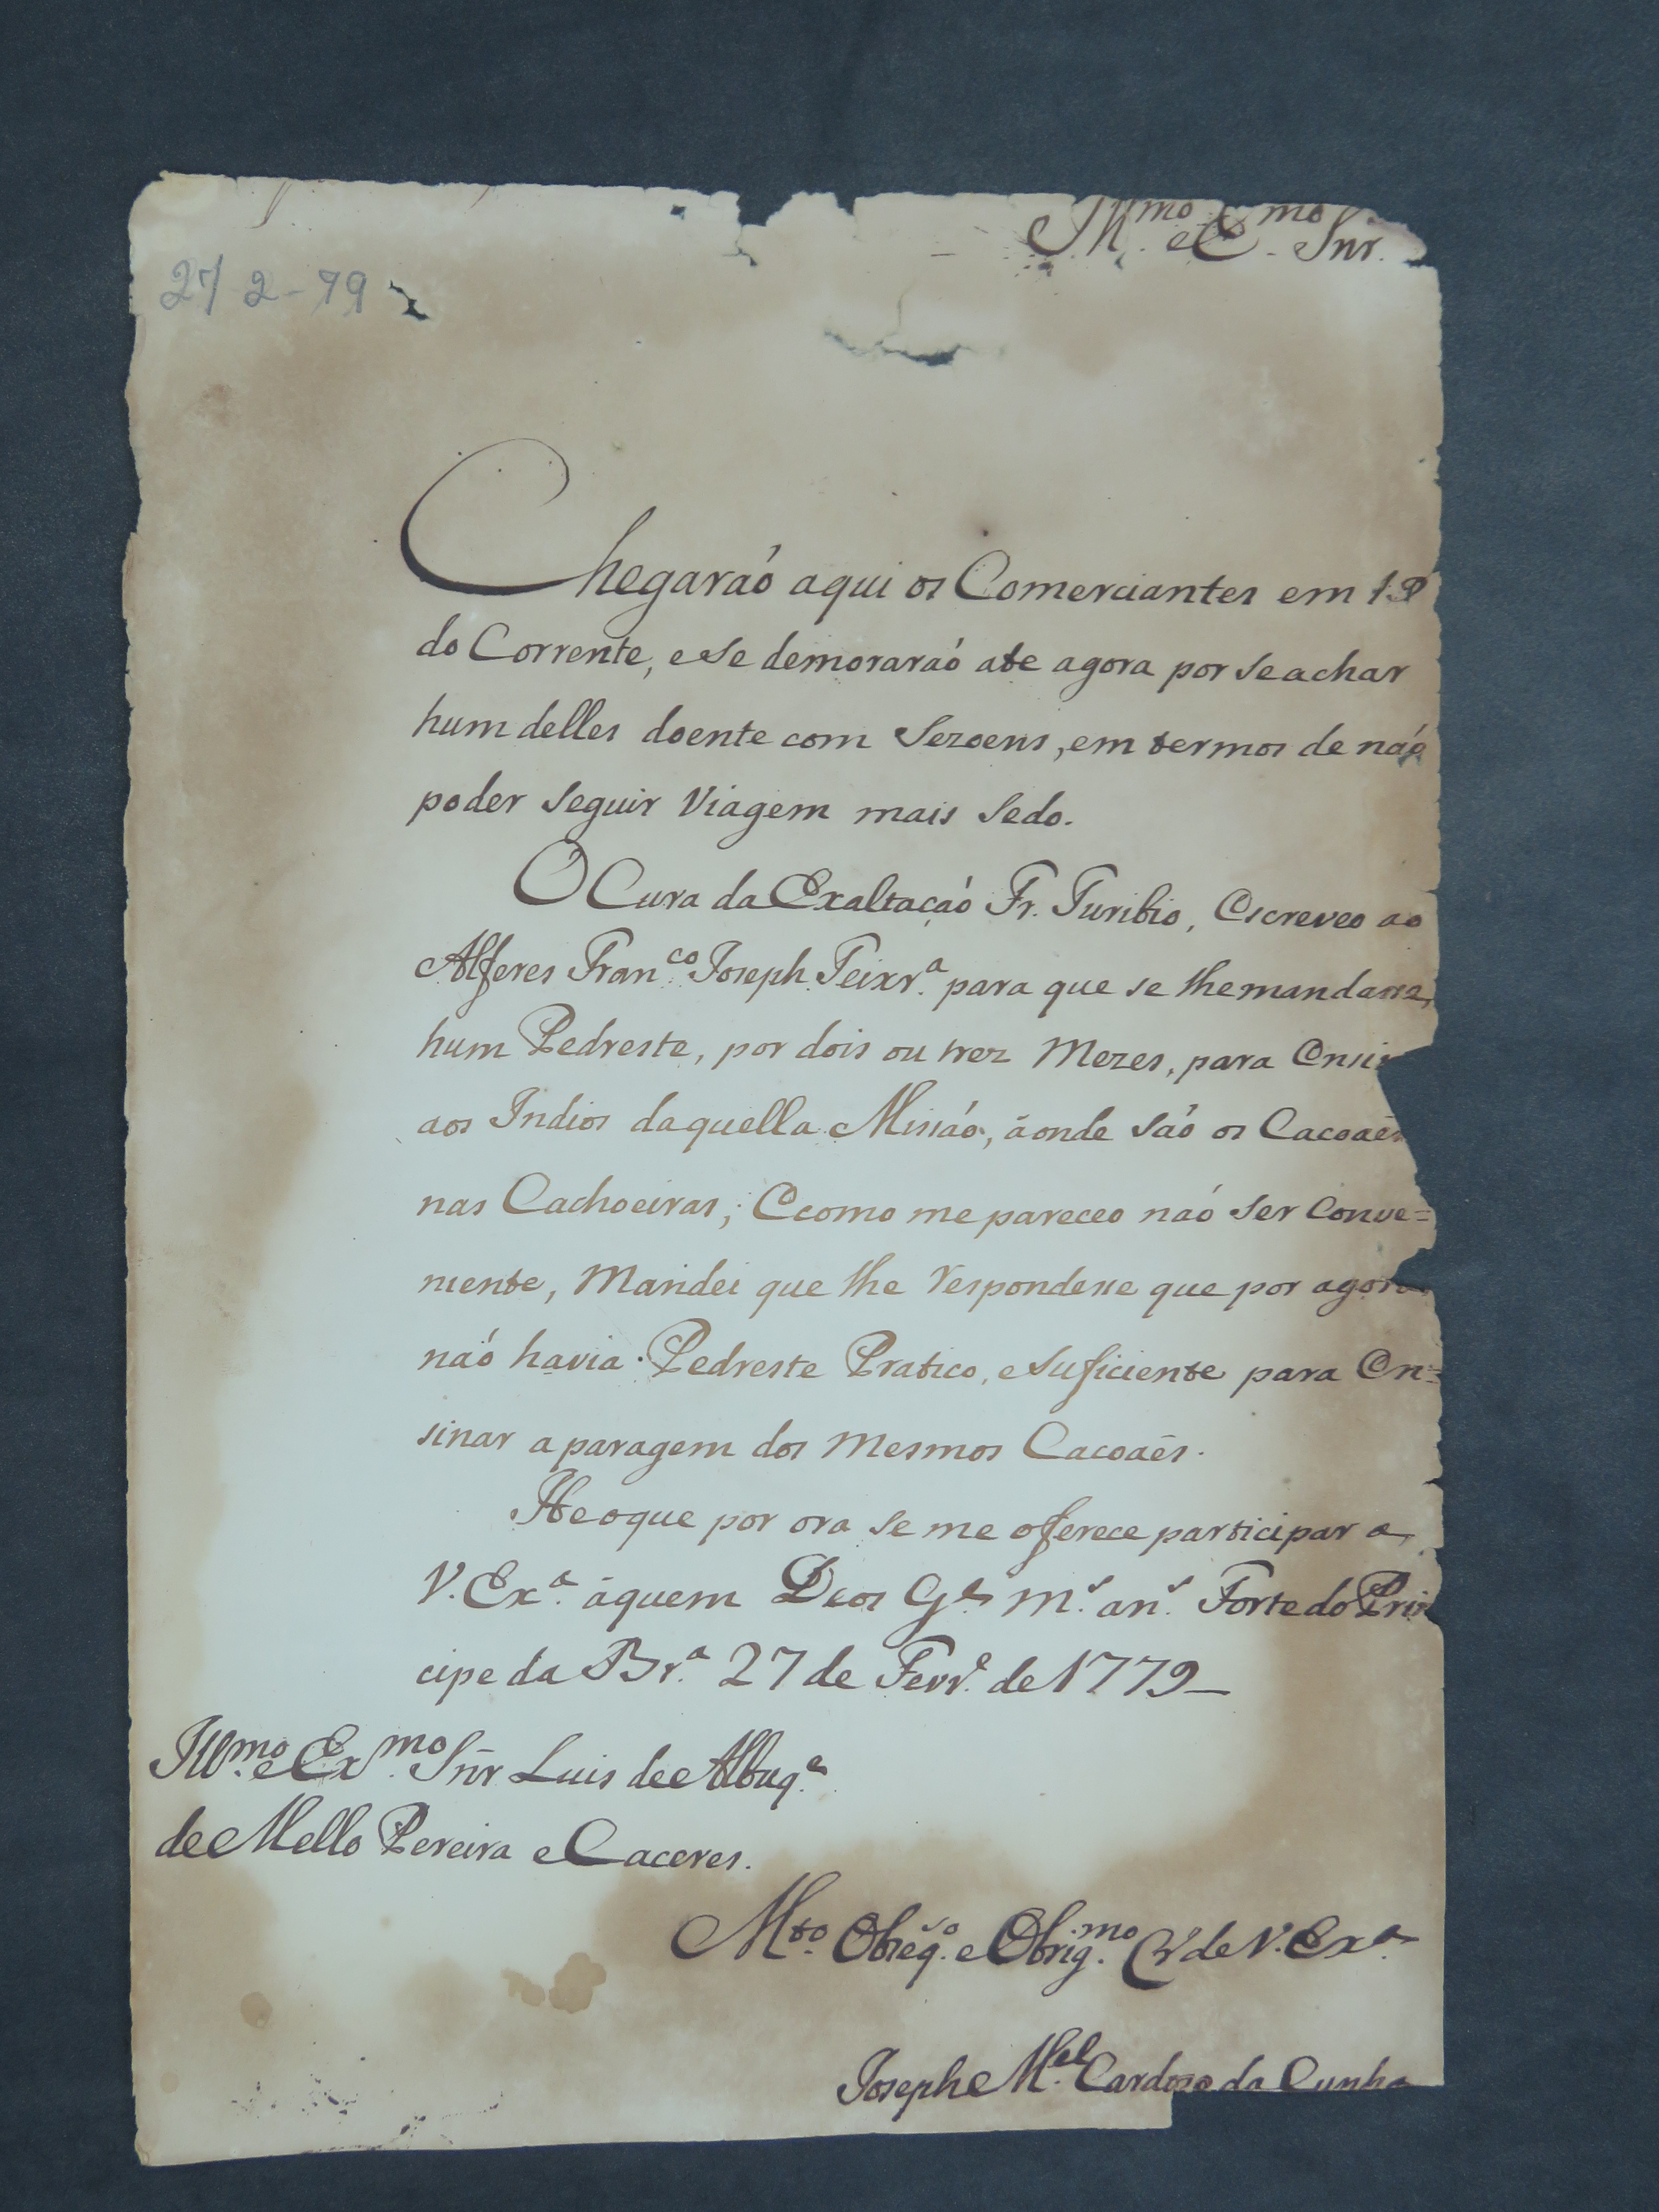 Ill.mo e E.mo Snr.
27 2-79
Chegaraó aqui os Comerciantes em 19
do Corrente, e se demoraraó ate agora por se achar
hum delles doente com Sezoens, em termos de naó
poder seguir Viagem mais Sedo.
O Cura da Exaltaçaó Fr. Turibio, Escreveo ao
Alferes Fran.co Joseph Teixr.a para que se lhe mandasse
hum Pedreste, por dois ou trez Mezes, para
aos Indios daquella Missaó, áonde saó os Cacoaés
nas Cachoeiras; E como me pareceo naó ser Conve=
niente, Mandei que lhe respondesse que por agora
naó havia Pedreste Pratico, e suficiente para En=
sinar a paragem dos Mesmos Cacoaés.
He o que por ora se me oferece participar a
V. Ex.a áquem Deos G.e m.s an.s Forte do Prin
cipe da Br.a 27 de Fevr.o de 1779_
Ill.mo e Ex.mo Snr Luis de Albuq.e
de Mello Pereira e Caceres.
M.to Obzeq.zo e Obrig.mo Cr. de V. Ex.a
Joseph M.el Cardozo da Cunha